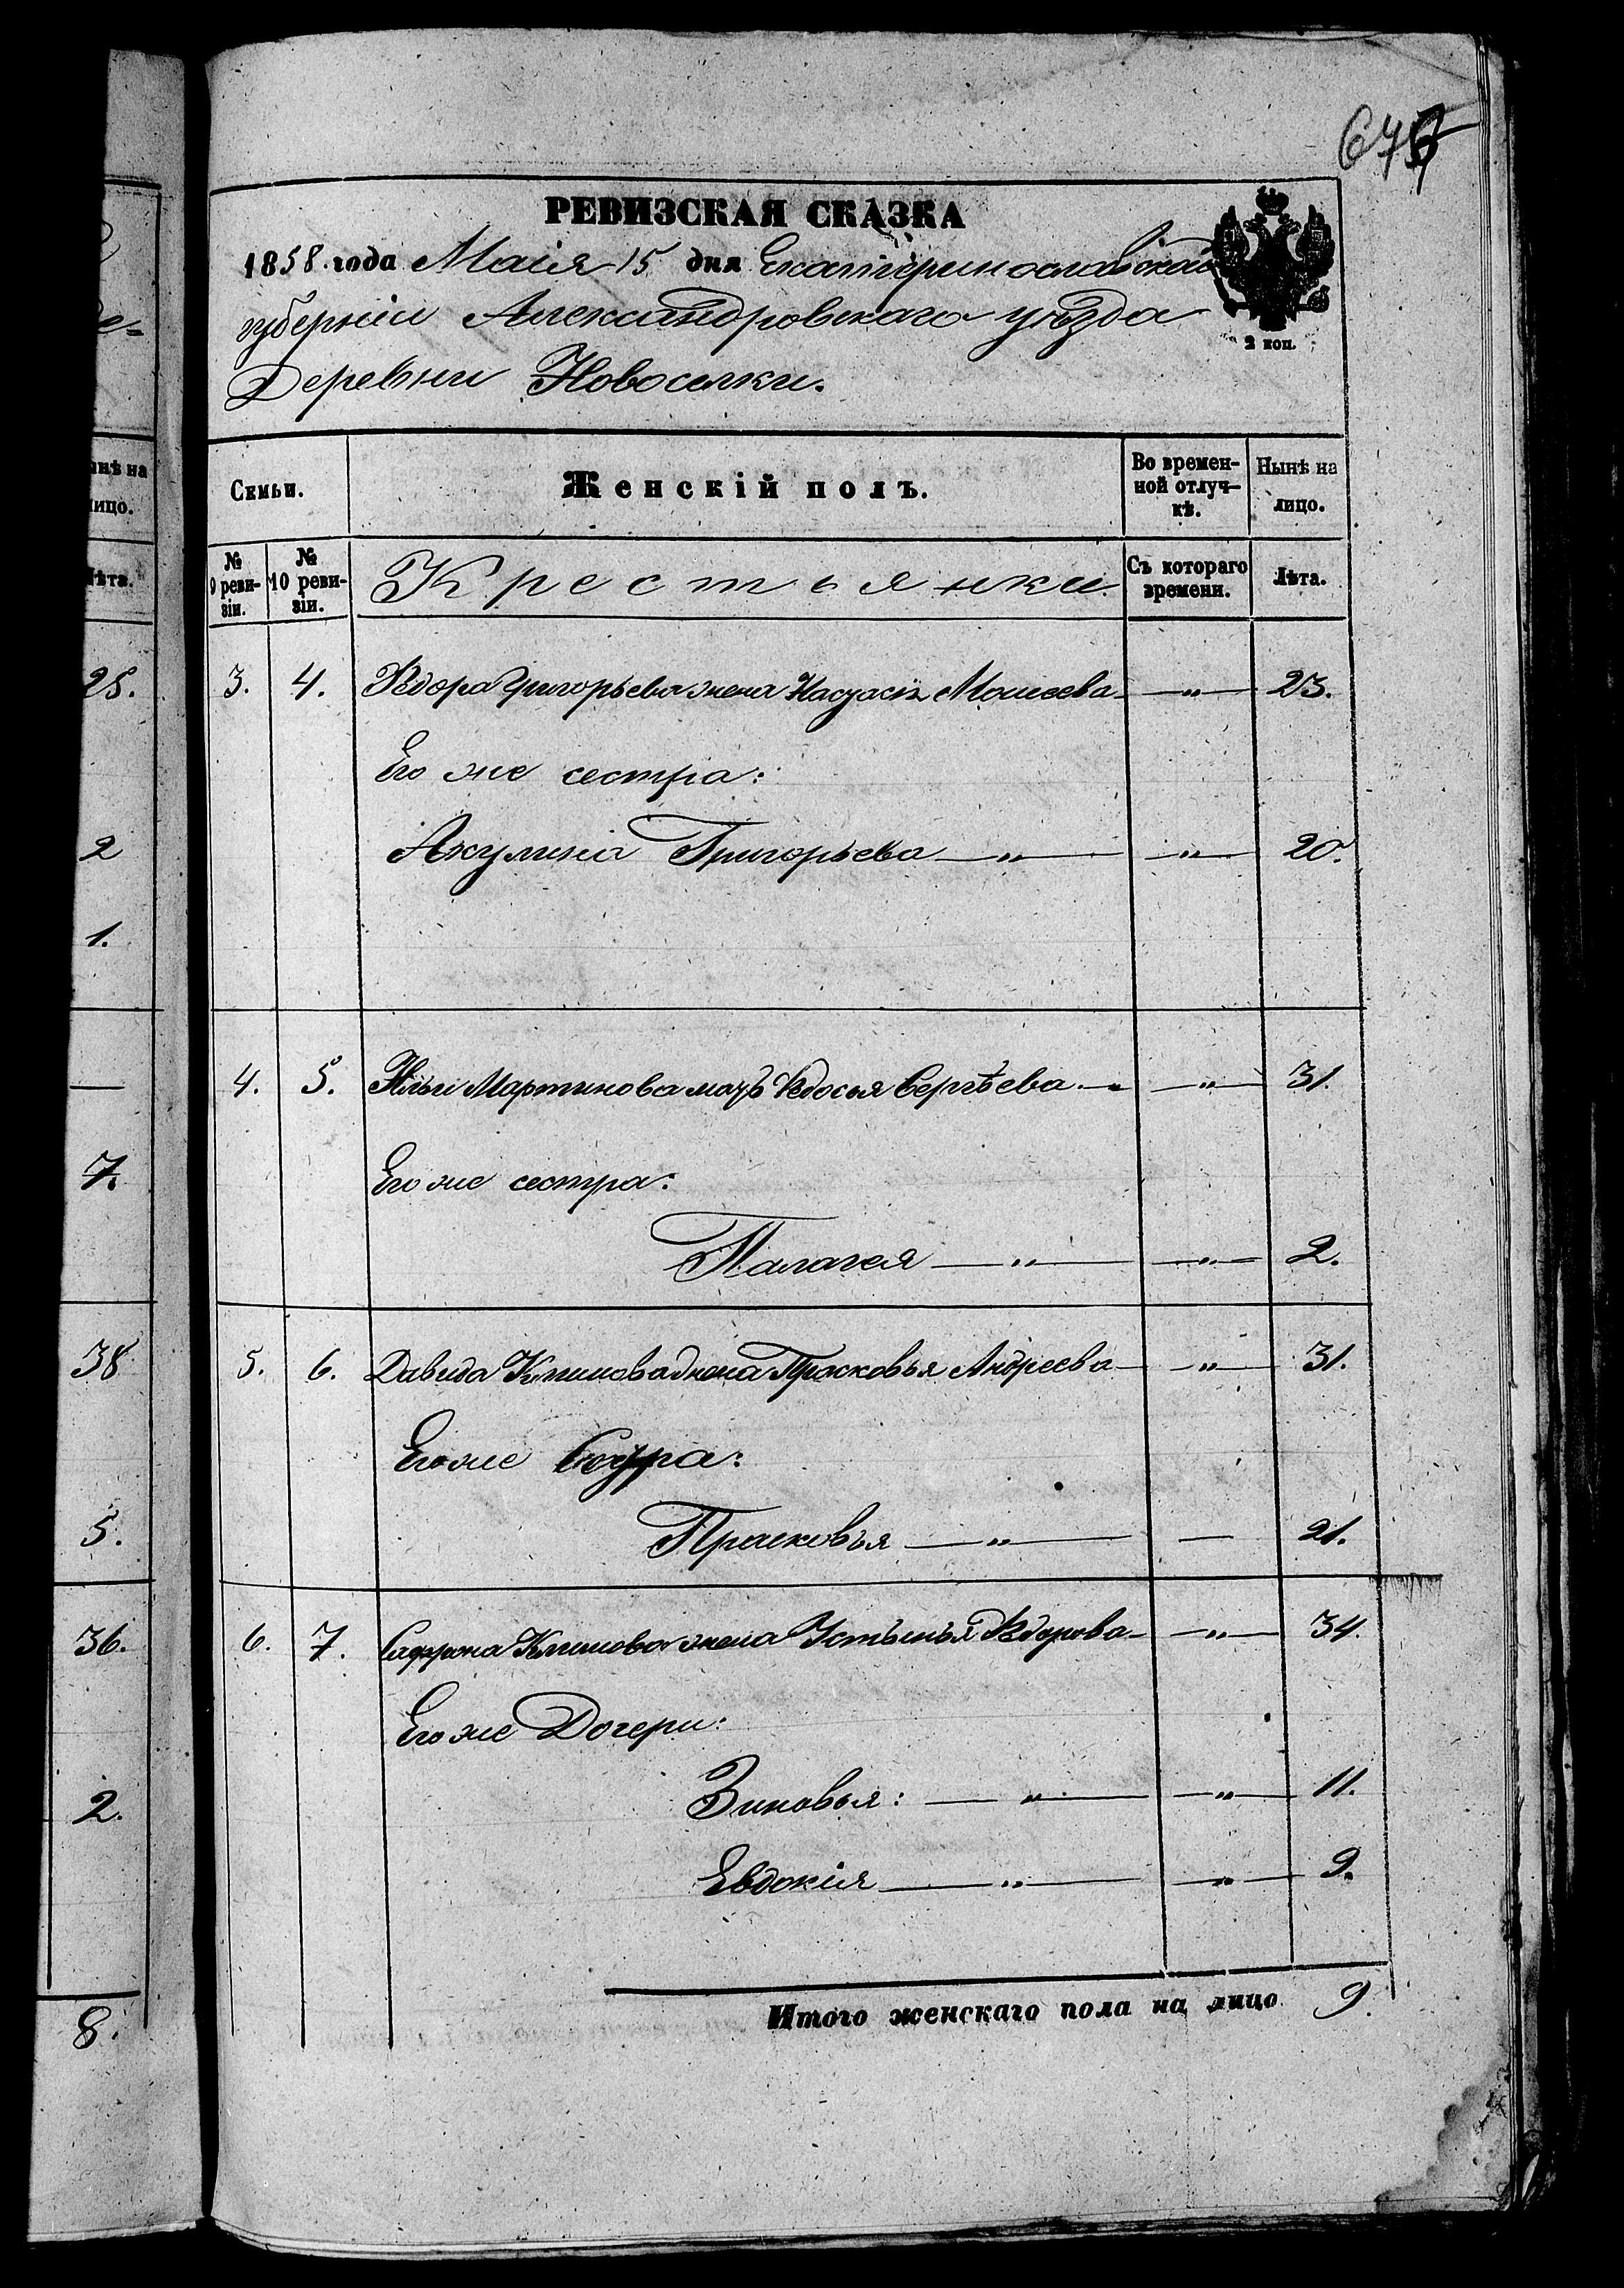 675
РЕВИЗСКАЯ СКАЗКА
1858. года Маія 15 дня Екатеринославской
губерніи Александровскаго уѣзда
2 коп.
Деревни Новоселки.
Семьи.
Женскій полъ.
Во времен-
ной отлуч-
кѣ.
Нынѣ на
лицо.
№
9 реви-
зіи.
№
10 реви-
зіи.
Крестьянки.
Съ котораго
времени.
Лѣта.
3. 4. Ѳедора Григорьева жена Настасія Моисеева — „ — 23.
Его же сестра:
Акулина Григорьева — „ — — „ — 20.
4. 5. Ильи Мартинова мать Ѳедосья Сергѣева. — — „ — 31.
Его же сестра:
Палагея — „ — — „ — 2.
5. 6. Давида Климова жена Прасковья Андреева — — „ — 31.
Его же Сестра:
Прасковья — „ — — 21.
6. 7. Сафрона Климова жена Устинья Ѳедорова — — „ — 34.
Его же Дочери:
Зиновья: — „ — — „ — 11.
Евдокія — „ — — „ — 9.
Итого женскаго пола на лицо 9.
нѣ на
ицо.
ѣта.
25.
2
1.
—
7.
38
5.
36.
2.
8.